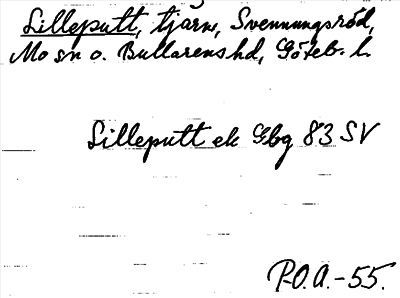 Lilleputt, tjärn, Svenningsröd,
Mo sn o. Bullarens hd, Göteb. l.
Lilleputt ek Gbg 83 SV
P.O.A.-55.